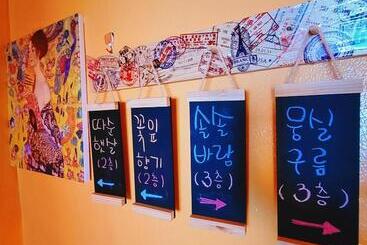 따순
햇살
(2층)
←
꽃잎
향기
(2층)
←
솔솔
바람
(3층)
→
몽실
구름
(3층)
→